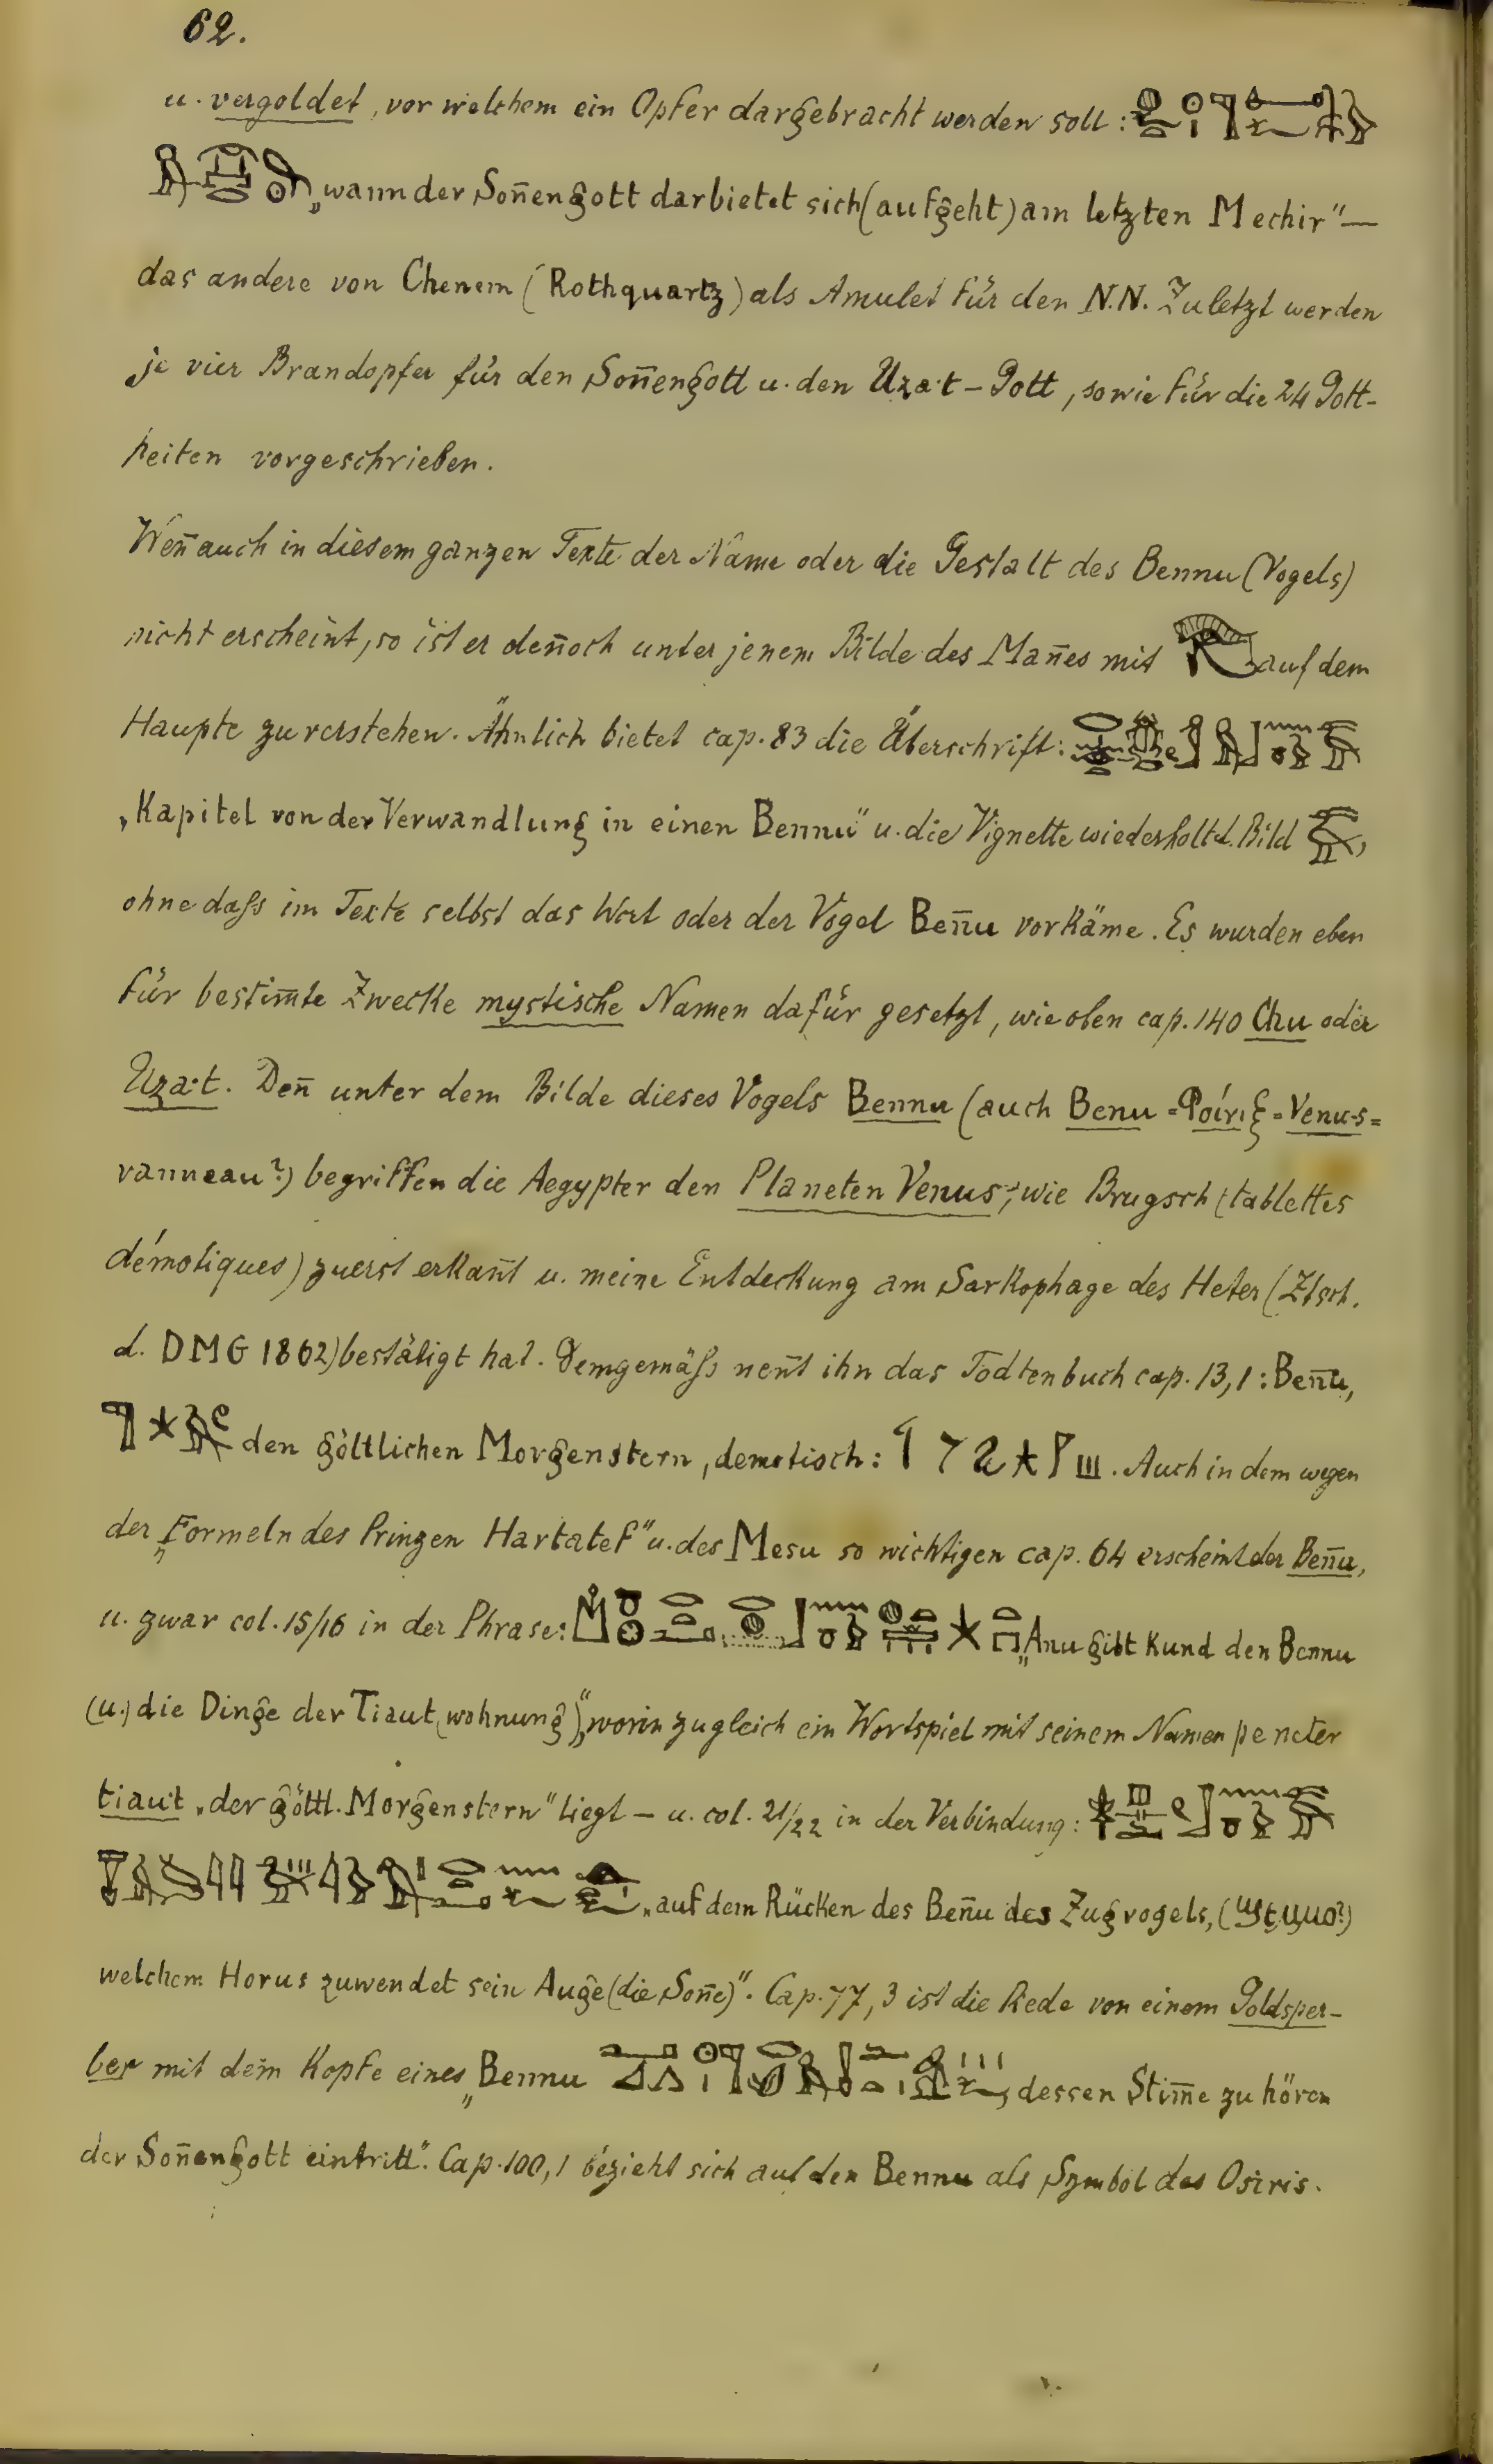 62.
u. vergoldet, vor welchem ein Opfer dargebracht werden soll:
„wann der Son̄engott darbietet sich (aufgeht) am letzten Mechir“ —
das andere von Chenem (Rothquartz) als Amulet für den N.N. Zuletzt werden
je vier Brandopfer für den Son̄engott u. den Uza·t-Gott, sowie für die 24 Gott-
heiten vorgeschrieben.
Wen̄ auch in diesem ganzen Texte der Name oder die Gestalt des Bennu (Vogels)
nicht erscheint, so ist er den̄och unter jenem Bilde des Man̄es mit auf dem
Haupte zu verstehen. Ähnlich bietet cap. 83 die Überschrift:
„Kapitel von der Verwandlung in einen Bennu“ u. die Vignette wiederholt d. Bild ,
ohne daſs im Texte selbst das Wort oder der Vogel Ben̄u vorkäme. Es wurden eben
für bestim̄te Zwecke mystische Namen dafür gesetzt, wie oben cap. 140 Chu oder
Uza·t. Den̄ unter dem Bilde dieses Vogels Bennu (auch Benu = = Venu-s =
vanneau?) begriffen die Aegypter den Planeten Venus, wie Brugsch (tablettes
démotiques) zuerst erkan̄t u. meine Entdeckung am Sarkophage des Heter (Ztsch.
d. DMG 1862) bestätigt hat. Demgemäſs nen̄t ihn das Todtenbuch cap. 13,1: Ben̄u,
den göttlichen Morgenstern, demotisch: . Auch in dem wegen
der „Formeln des Prinzen Hartatef“ u. des Mesu so wichtigen cap. 64 erscheint der Ben̄u,
u. zwar col. 15/16 in der Phrase: „Anu gibt kund den Bennu
(u.) die Dinge der Tiaut (wohnung)“, worin zugleich ein Wortspiel mit seinem Namen pe neter
tiaut „der göttl. Morgenstern“ liegt — u. col. 21/22 in der Verbindung:
„auf dem Rücken des Ben̄u des Zugvogels, ( ?)
welchem Horus zuwendet sein Auge (die Son̄e)“. Cap. 77, 3 ist die Rede von einem Goldsper-
ber mit dem Kopfe eines „Bennu , dessen Stim̄e zu hören
der Son̄engott eintritt“. Cap. 100, 1 bezieht sich auf den Bennu als Symbol des Osiris.